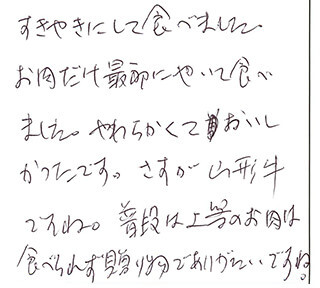 すきやきにして食べました。
お肉だけ最初にやいて食べ
ました。やわらかくておいし
かったです。さすが山形牛
ですね。普段は上等のお肉は
食べられず贈り物でありがたいですね。